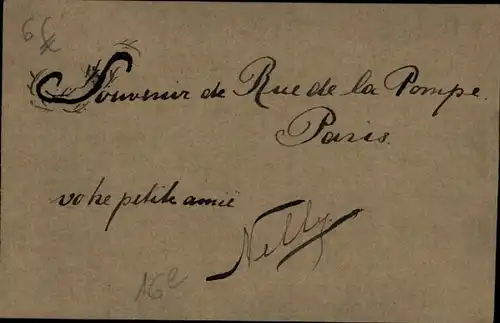 Souvenir de Rue de la Pompe.
Paris.
votre petite amie
Nelly